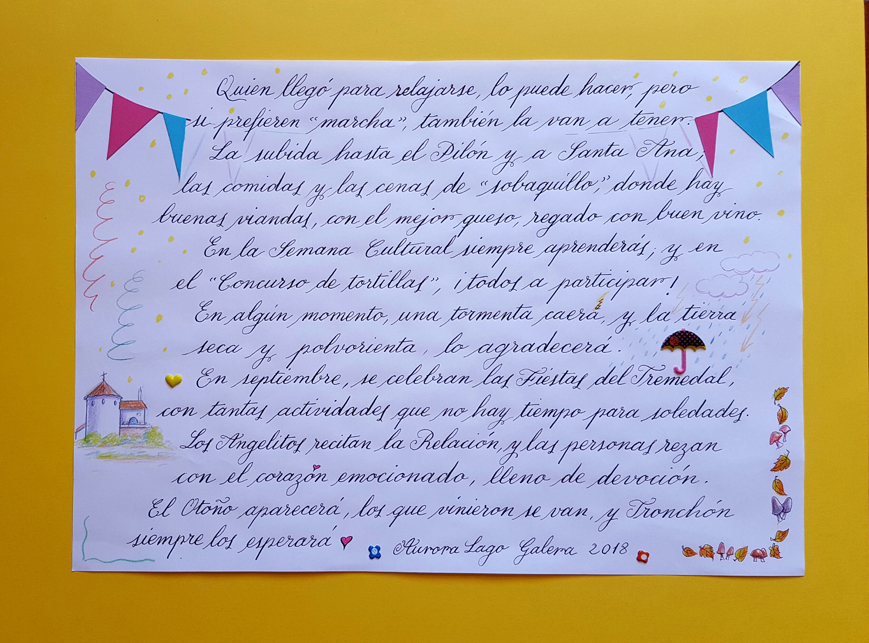 Quien llegó para relajarse, lo puede hacer, pero
si prefieren "marcha", también la van a tener.
La subida hasta el Pilón y a Santa Ana,
las comidas y las cenas de "sobaquillo," donde hay
buenas viandas, con el mejor queso, regado con buen vino.
En la Semana Cultural siempre aprenderás, y en
el "Concurso de tortillas", ¡todos a participar!
En algún momento, una tormenta caerá, y la tierra
seca y polvorienta, lo agradecerá.
En septiembre, se celebran las Fiestas del Tremedal,
con tantas actividades que no hay tiempo para soledades.
Los Angelitos recitan la Relación, y las personas rezan
con el corazón emocionado, lleno de devoción.
El Otoño aparecerá, los que vinieron se van, y Tronchón
siempre los esperará
Aurora Lago Galera 2018